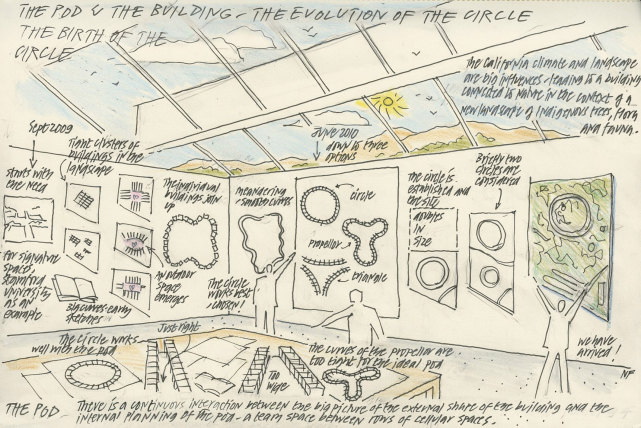 THE POD & THE BUILDING - THE EVOLUTION OF THE CIRCLE
THE BIRTH OF THE
CIRCLE
The California climate and landscape
are big influences - leading to a building
connected to nature in the context of a
new landscape of indigenous trees, flora
and fauna.
Sept 2009
starts with
the need
for signature
spaces,
Stanford
University
as an
example
Tight clusters of
buildings in the
landscape
zig curves - early
sketches
The individual
buildings join
up
an outdoor
space
emerges
meandering
smooth curves
The circle
works best
chosen!
June 2010
down to three
options
circle
propellor
triangle
The circle is
established and
the site
doubles
in
size
Briefly two
circles are
considered
we have
arrived!
NF
The circle works
well with the pod
Just right
Too
wide
The curves of the propellor are
too tight for the ideal pod
THE POD - There is a continuous interaction between the big picture of the external shape of the building and the
internal planning of the pod - a team space between rows of cellular spaces.